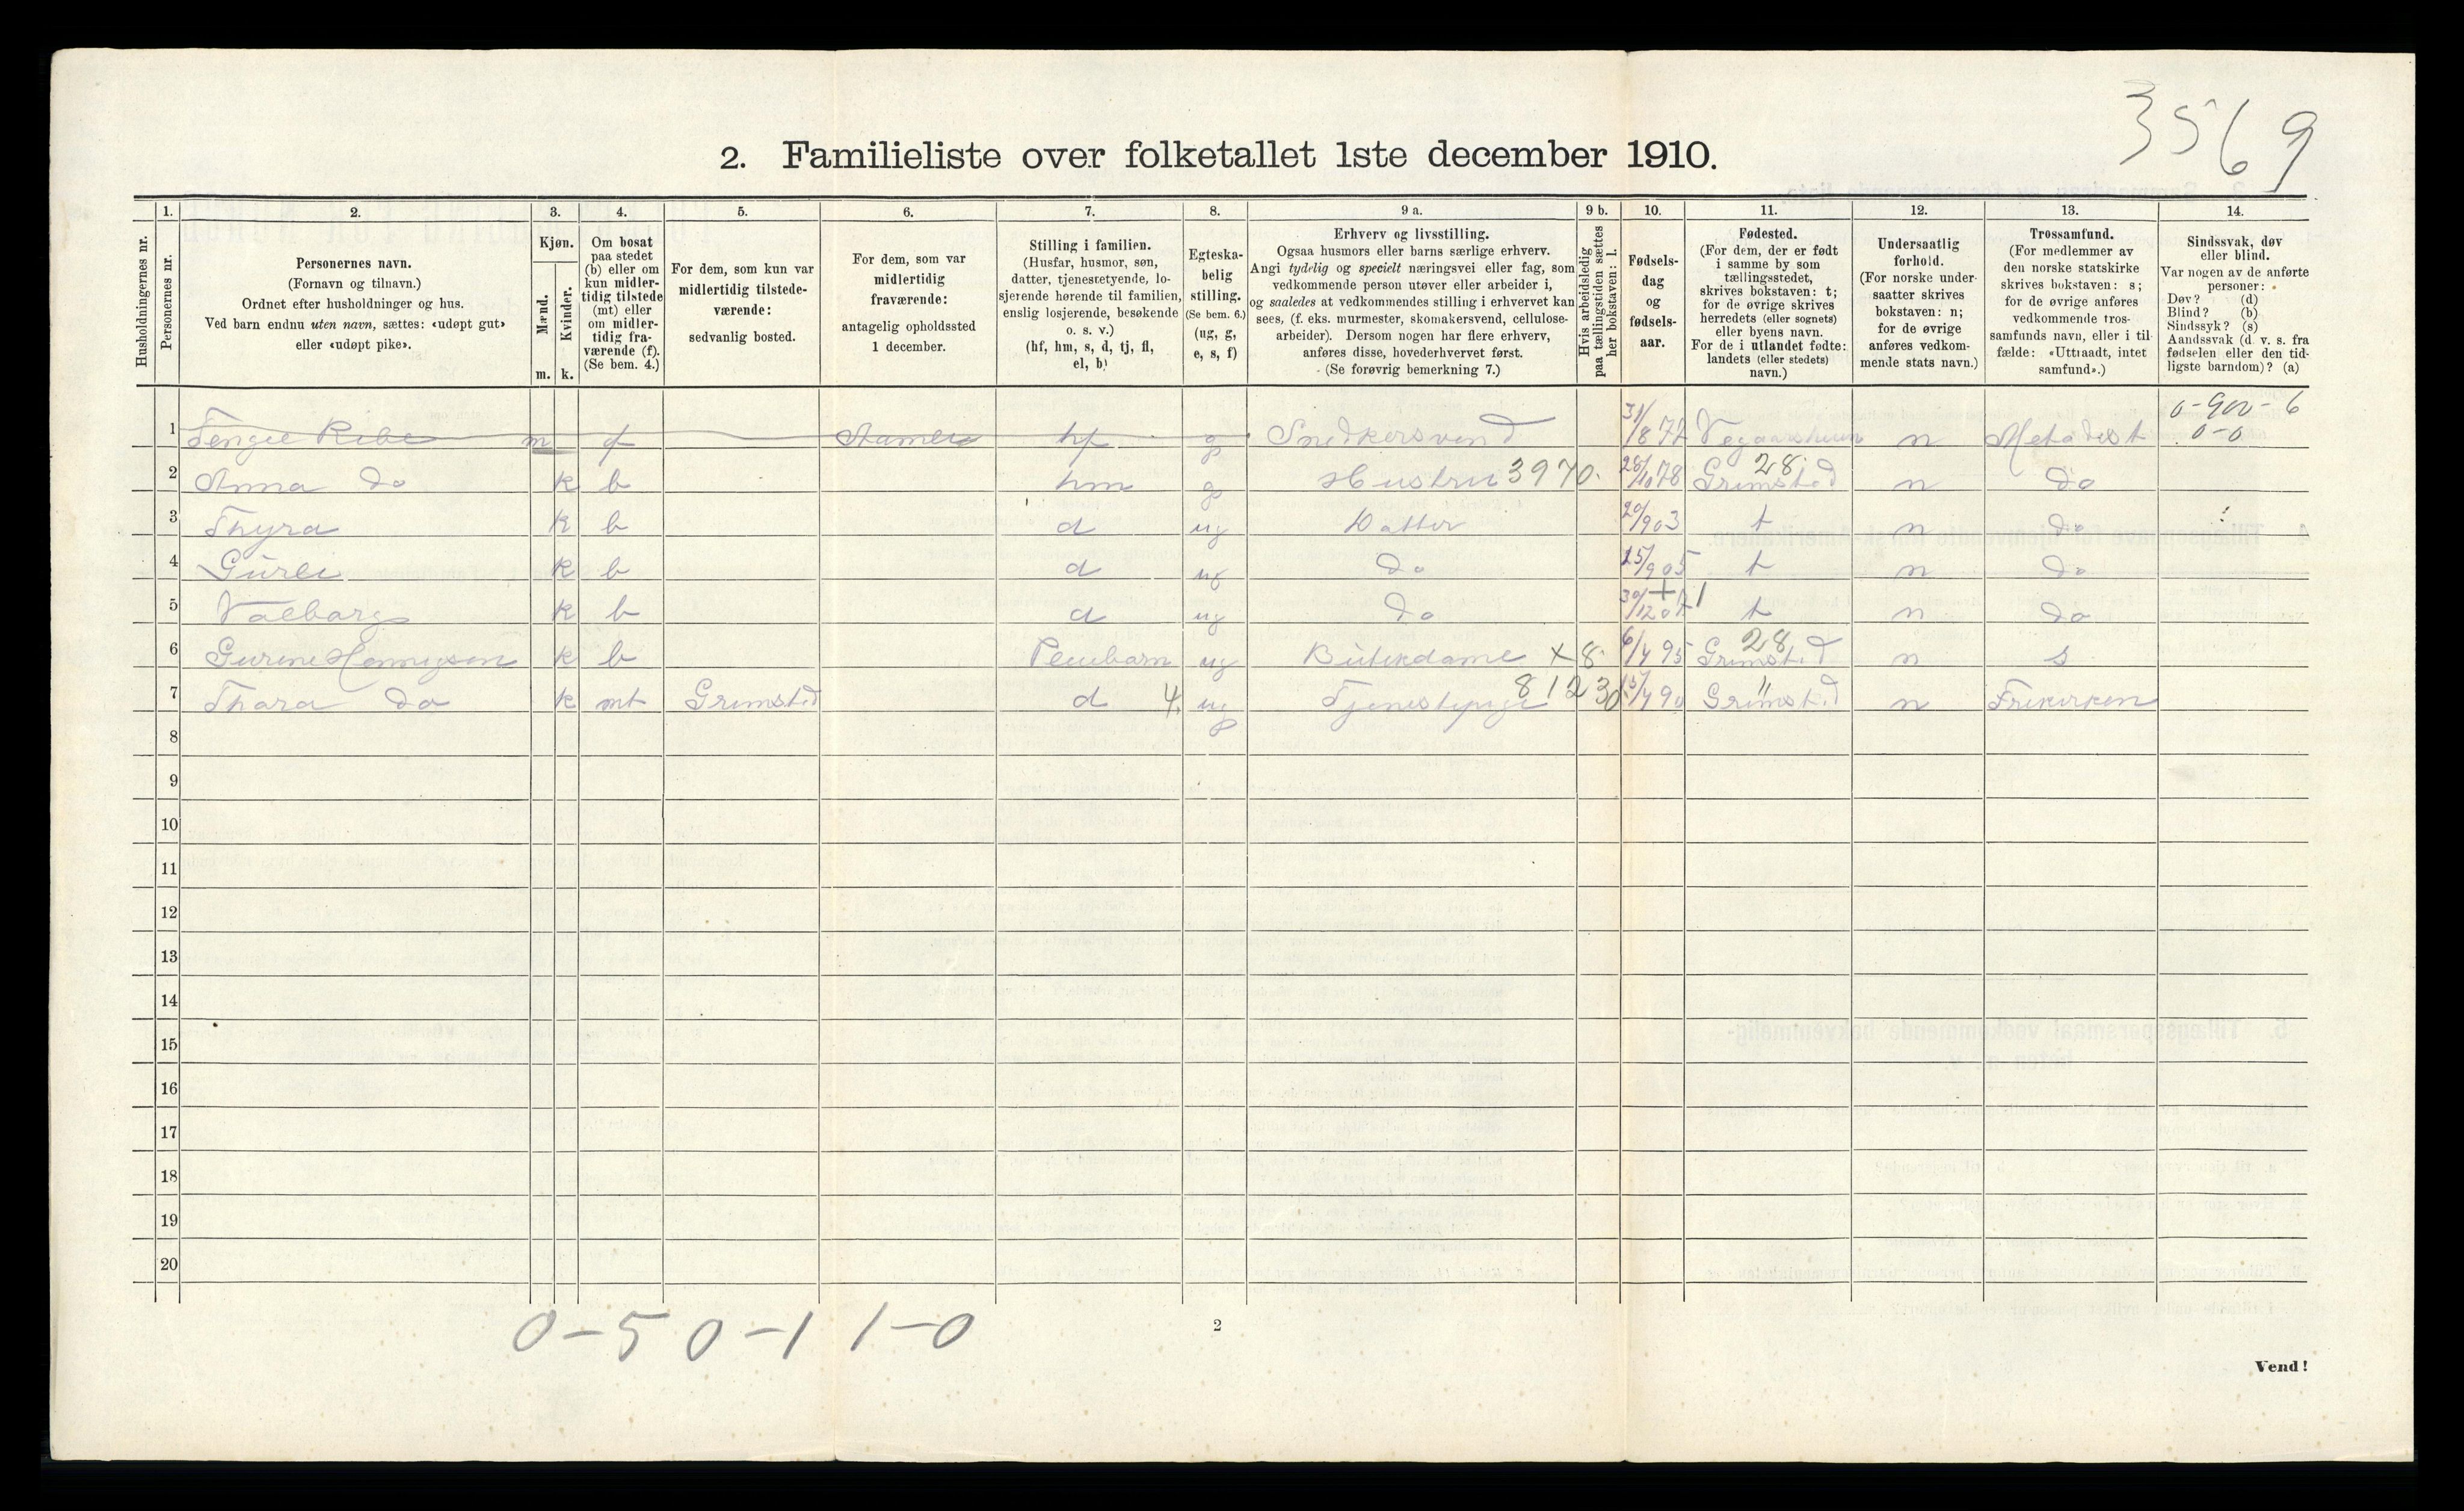 3569
2. Familieliste over folketallet 1ste december 1910.
Husholdningernes nr.
1. Personernes nr.
2. Personernes navn. (Fornavn og tilnavn.) Ordnet efter husholdninger og hus. Ved barn endnu uten navn, sættes: «udøpt gut» eller «udøpt pike».
3. Kjøn. Mænd. m. Kvinder. k.
4. Om bosat paa stedet (b) eller om kun midlertidig tilstede (mt) eller om midlertidig fraværende (f). (Se bem. 4.)
5. For dem, som kun var midlertidig tilstedeværende: sedvanlig bosted.
6. For dem, som var midlertidig fraværende: antagelig opholdssted 1 december.
7. Stilling i familien. (Husfar, husmor, søn, datter, tjenestetyende, losjerende hørende til familien, enslig losjerende, besøkende o. s. v.) (hf, hm, s, d, tj, fl, el, b)
8. Egteskabelig stilling. (Se bem. 6.) (ug, g, e, s, f)
9 a. Erhverv og livsstilling. Ogsaa husmors eller barns særlige erhverv. Angi tydelig og specielt næringsvei eller fag, som vedkommende person utøver eller arbeider i, og saaledes at vedkommendes stilling i erhvervet kan sees, (f. eks. murmester, skomakersvend, cellulosearbeider). Dersom nogen har flere erhverv, anføres disse, hovederhvervet først. (Se forøvrig bemerkning 7.)
9 b. Hvis arbeidsledig paa tællingstiden sættes her bokstaven: l.
10. Fødselsdag og fødselsaar.
11. Fødested. (For dem, der er født i samme by som tællingsstedet, skrives bokstaven: t; for de øvrige skrives herredets (eller sognets) eller byens navn. For de i utlandet fødte: landets (eller stedets) navn.)
12. Undersaatlig forhold. (For norske undersaatter skrives bokstaven: n; for de øvrige anføres vedkommende stats navn.)
13. Trossamfund. (For medlemmer av den norske statskirke skrives bokstaven: s; for de øvrige anføres vedkommende trossamfunds navn, eller i tilfælde: «Uttraadt, intet samfund».)
14. Sindssvak, døv eller blind. Var nogen av de anførte personer: Døv? (d) Blind? (b) Sindssyk? (s) Aandssvak (d. v. s. fra fødselen eller den tidligste barndom)? (a)
0-900-6
1 Ribe m f hf g Snedkersvend n Metodist 0-0
2 Anna do k b hm g Hustru 3970. 28/10 78 28 Grimstad n do
3 Thyra k b d ug Datter t n do
4 k b d ug do t n do
5 Valborg k b d ug do t n do
6 k b ug Butikdame x8 6/4 95 28 Grimstad n s
7 Thora do k mt Grimstad d 4. ug Tjenestepige 81230 Grimstad n Frikirken
8
9
10
11
12
13
14
15
16
17
18
19
20
0-5 0-1 1-0
2
Vend!